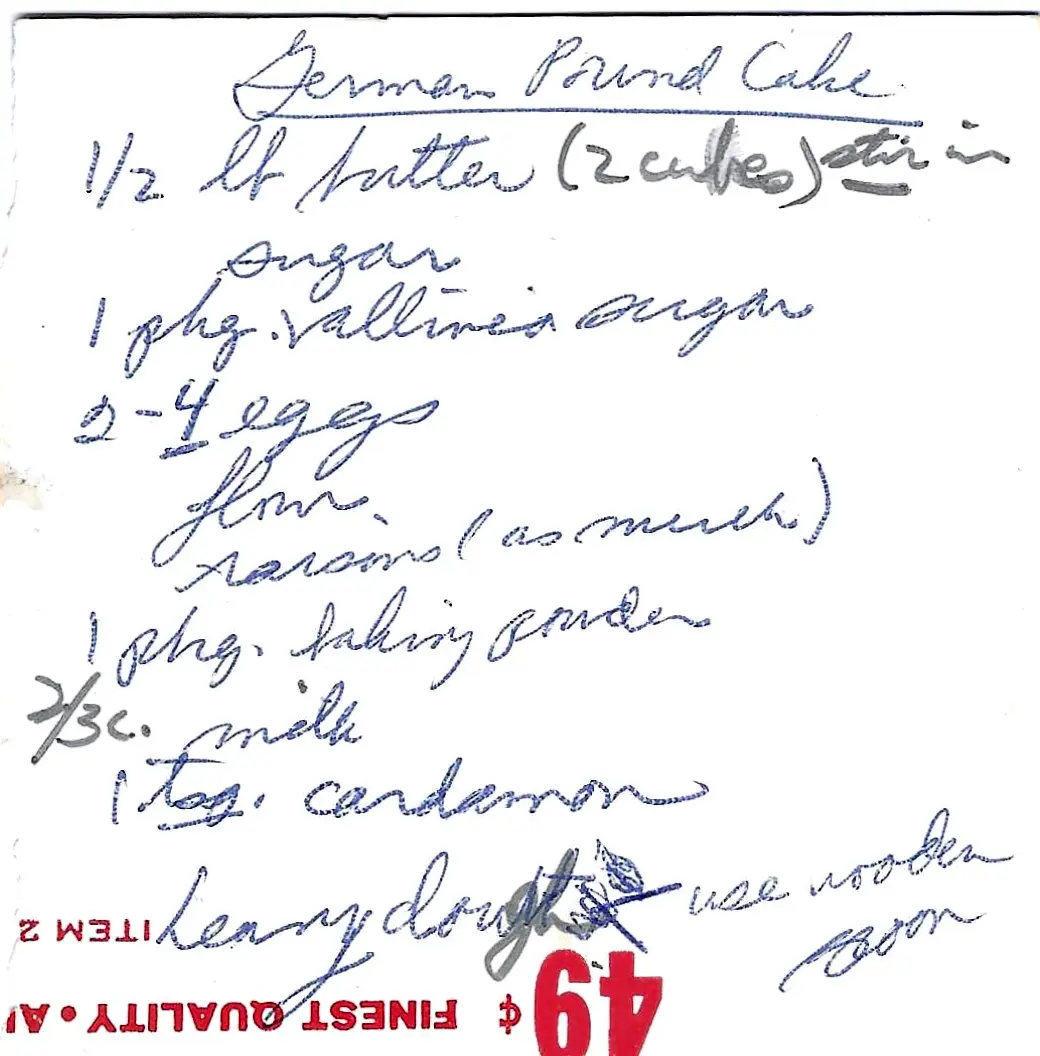 German Pound Cake
1/2 lb butter (2 cubes) stir in
sugar
1 pkg. vallinea sugar
2-4 eggs
flour
raisins (as much)
1 pkg. baking powder
2/3 c. milk
1 tsg. cardamon
heavy dough use wooden
spoon
ITEM 2
49¢ FINEST QUALITY • A